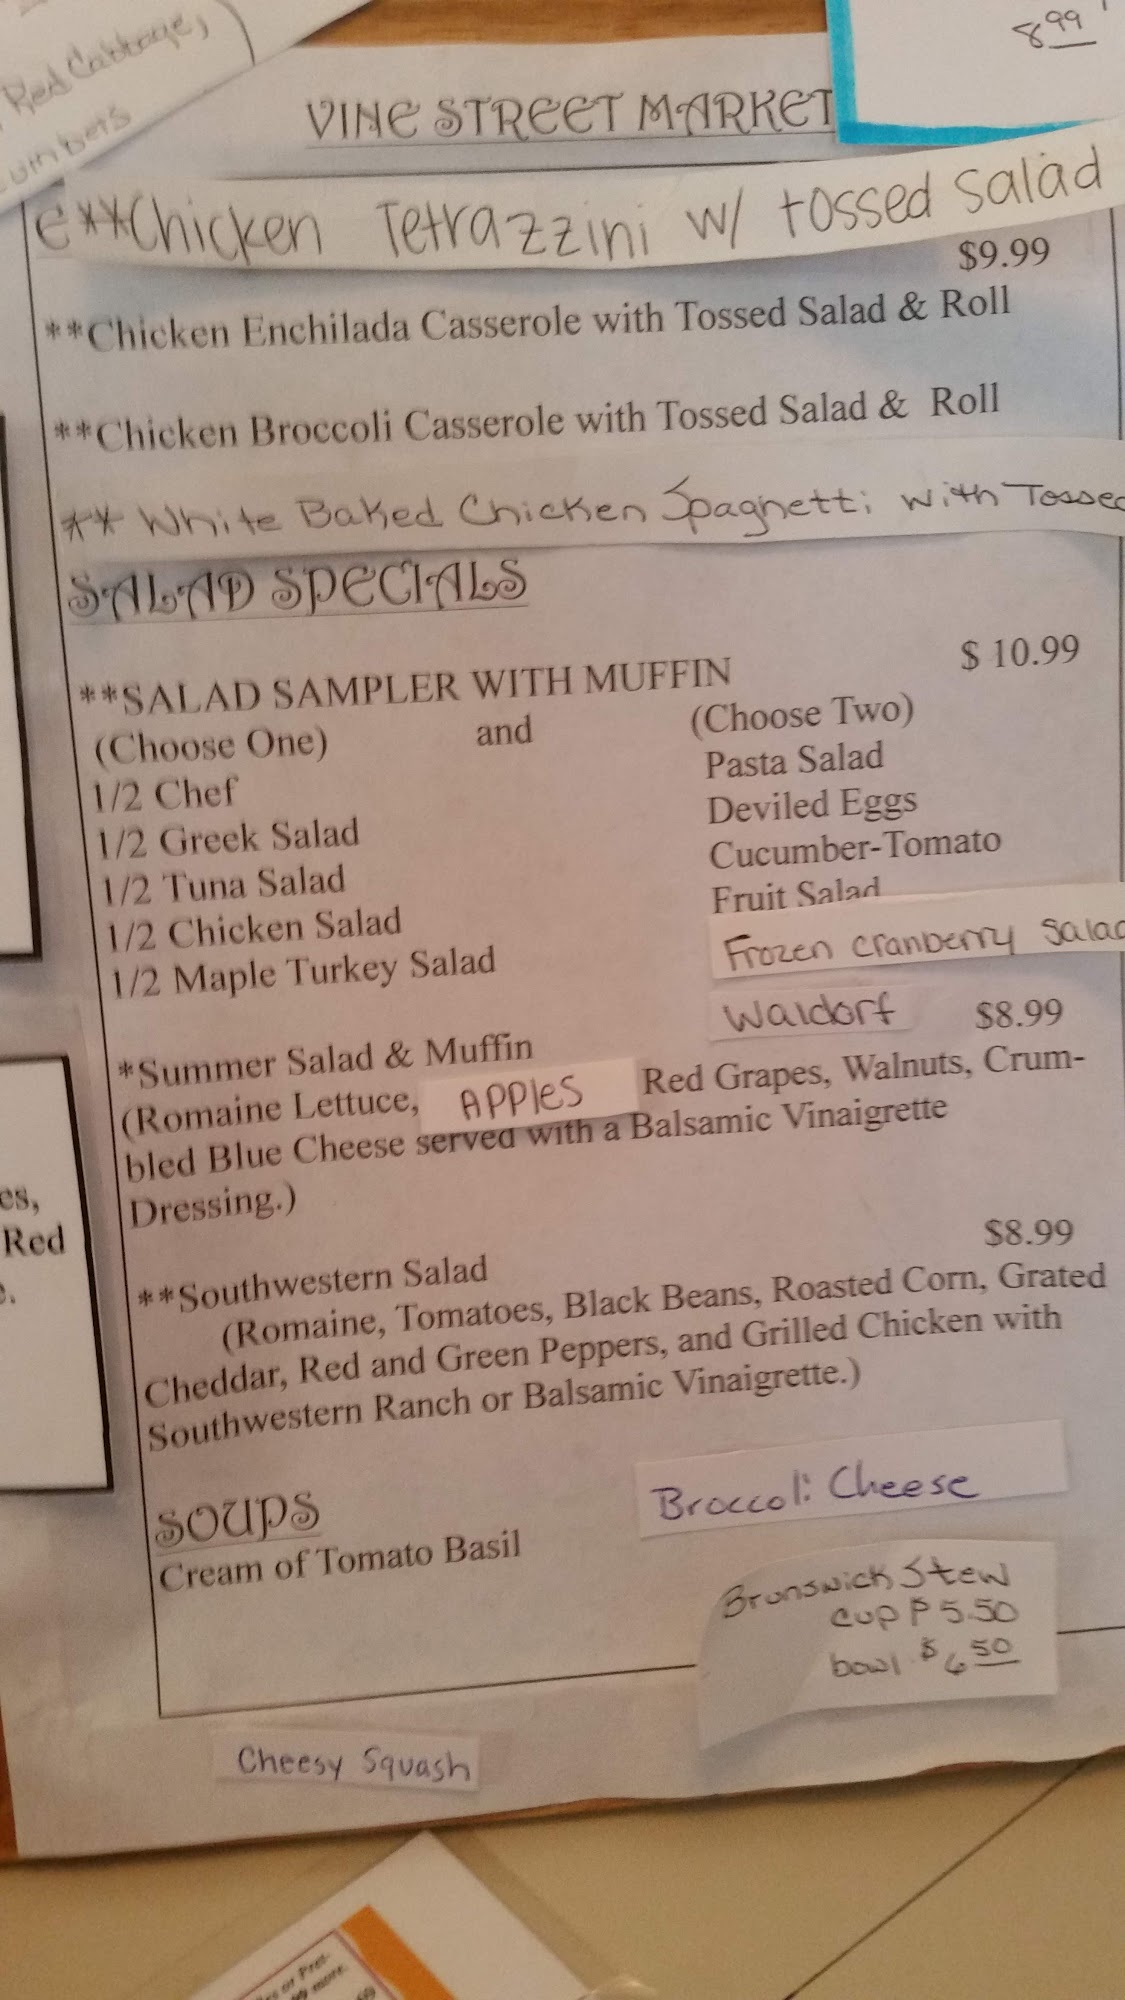 Red Cabbage,
8.99
VINE STREET MARKET
**Chicken Tetrazzini w/ tossed salad
$9.99
**Chicken Enchilada Casserole with Tossed Salad & Roll
**Chicken Broccoli Casserole with Tossed Salad & Roll
** White Baked Chicken Spaghetti with Tossed
SALAD SPECIALS
$ 10.99
**SALAD SAMPLER WITH MUFFIN
(Choose One) and (Choose Two)
1/2 Chef Pasta Salad
1/2 Greek Salad Deviled Eggs
1/2 Tuna Salad Cucumber-Tomato
1/2 Chicken Salad Fruit Salad
1/2 Maple Turkey Salad Frozen cranberry Salad
Waldorf $8.99
*Summer Salad & Muffin
(Romaine Lettuce, APPLES Red Grapes, Walnuts, Crum-
bled Blue Cheese served with a Balsamic Vinaigrette
Dressing.)
es,
Red
$8.99
**Southwestern Salad
(Romaine, Tomatoes, Black Beans, Roasted Corn, Grated
Cheddar, Red and Green Peppers, and Grilled Chicken with
Southwestern Ranch or Balsamic Vinaigrette.)
SOUPS
Broccoli Cheese
Cream of Tomato Basil
Brunswick Stew
cup $5.50
bowl $6.50
Cheesy Squash
or
more.